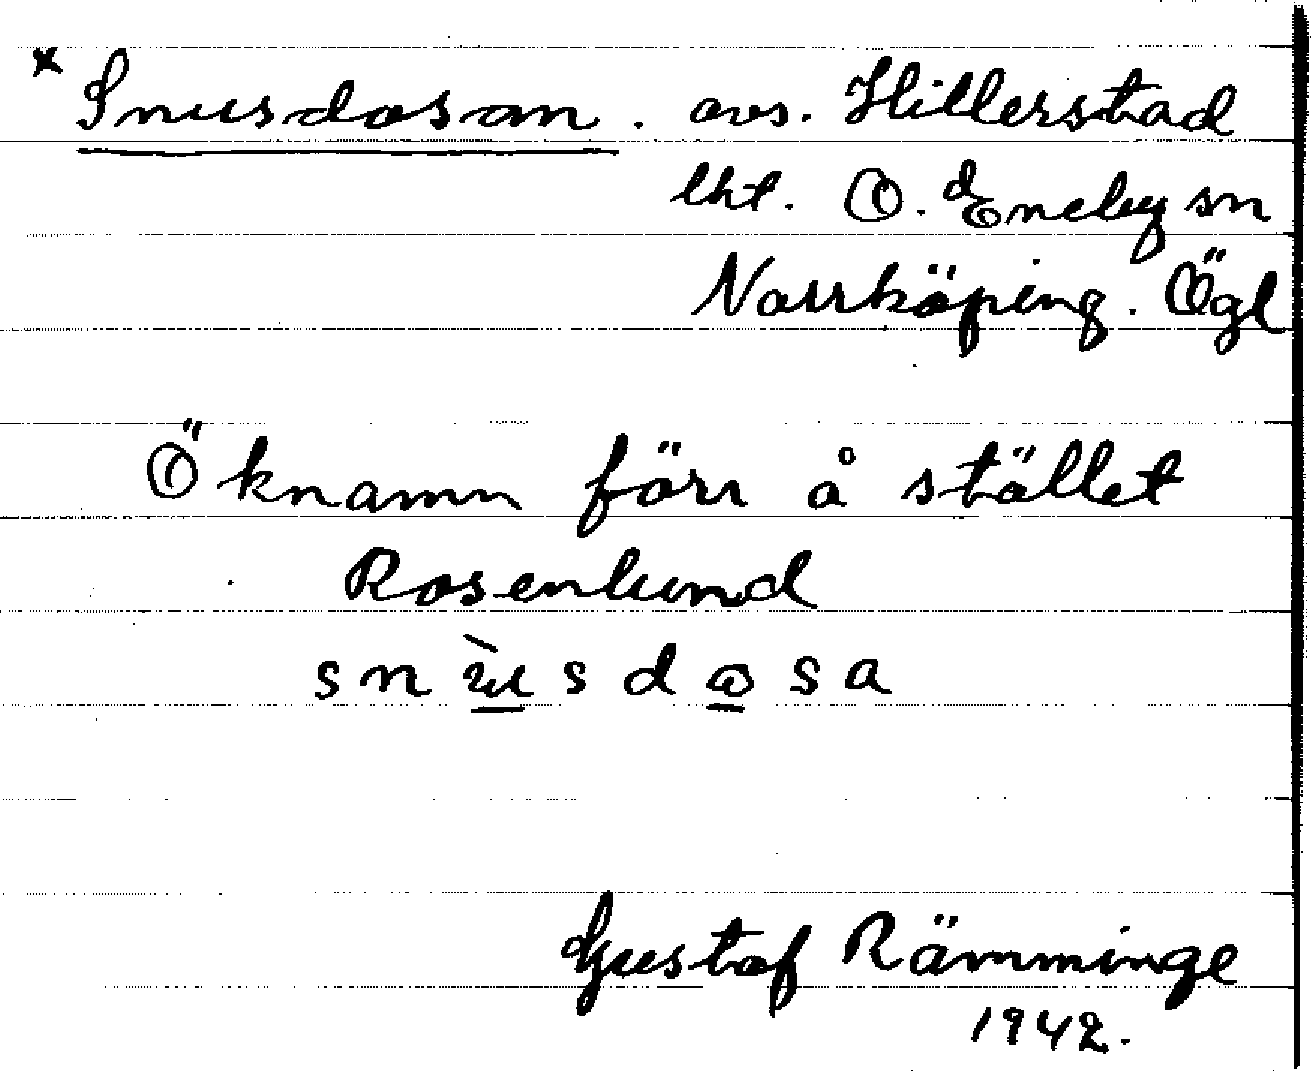 × Snusdosan. avs. Hillerstad
lht. Ö. Eneby sn
Norrköping. Ögl
Öknamn förr å stället
Rosenlund
snùsdosa
Gustaf Rämminge
1942.